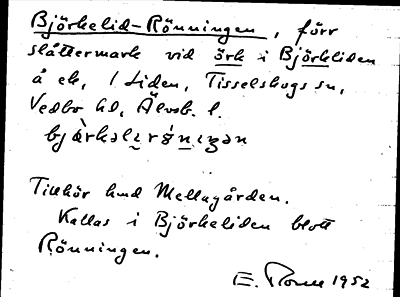 Björkelid-Rönningen, förr
slåttermark vid örk i Björkliden
å ek, 1 Liden, Tisselskogs sn,
Vedbo hd, Älvsb. l.
Tillhör hmd Mellangården.
Kallas i Björkeliden blott
Rönningen.
E. 1952